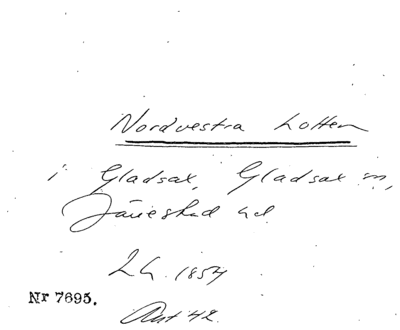 Nordvestra Lotten
i Gladsax, Gladsax sn,
Järrestad hd
1854
Nr 7695.
Akt 42.